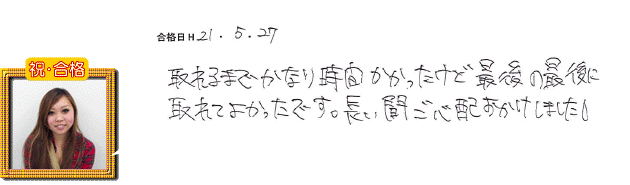 合格日 H 21.5.27
祝・合格
取れるまでかなり時間かかったけど最後の最後に
取れてよかったです。長い間ご心配おかけしました。